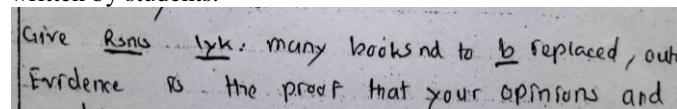 written by students.
Give Rsns lyk. many books nd to b replaced, out
Evidence is the proof that your opinions and